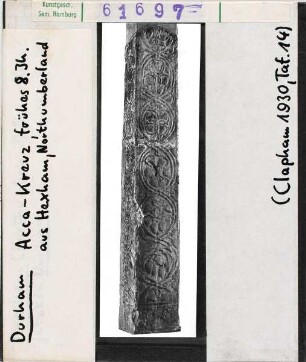 Kunstgesch.
Sem. Hamburg
61697-
Durham
Acca-Kreuz, frühes 8. Jh.
aus Hexham, Northumberland
(Clapham 1930, Taf. 14)